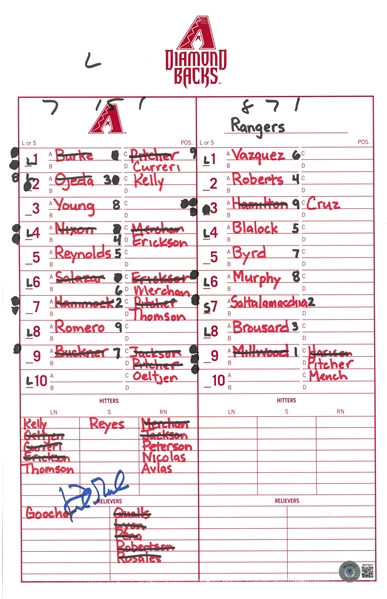 L
A
DIAMOND
BACKS
7 15 1
A
8 7 1
Rangers
L or S POS. L or S POS.
L1 Burke Pitcher 9
Curreri
L1 Vazquez 6
L2 Ojeda 3 Kelly
_2 Roberts 4
_3 Young 8
_3 Hamilton 9 Cruz
L4 Nixon 4 Merchan
Erickson
L4 Blalock 5
_5 Reynolds 5
_5 Byrd 7
L6 Salazar 6 Erickson
Merchan
L6 Murphy 8
_7 Hammock 2 Pitcher
Thomson
S7 Saltalamacchia 2
L8 Romero 9
L8 Brousard 3
_9 Buckner 7 Jackson
Pitcher
Oeltjen
_9 Millwood 1 Harrison
Pitcher
Mench
L10
_10
HITTERS HITTERS
LN S RN LN S RN
Kelly Reyes Merchan
Oeltjen Jackson
Curreri Peterson
Erickson Nicolas
Thomson Avlas
RELIEVERS RELIEVERS
Gooche Qualls
Lyon
Pena
Robertson
Rosales